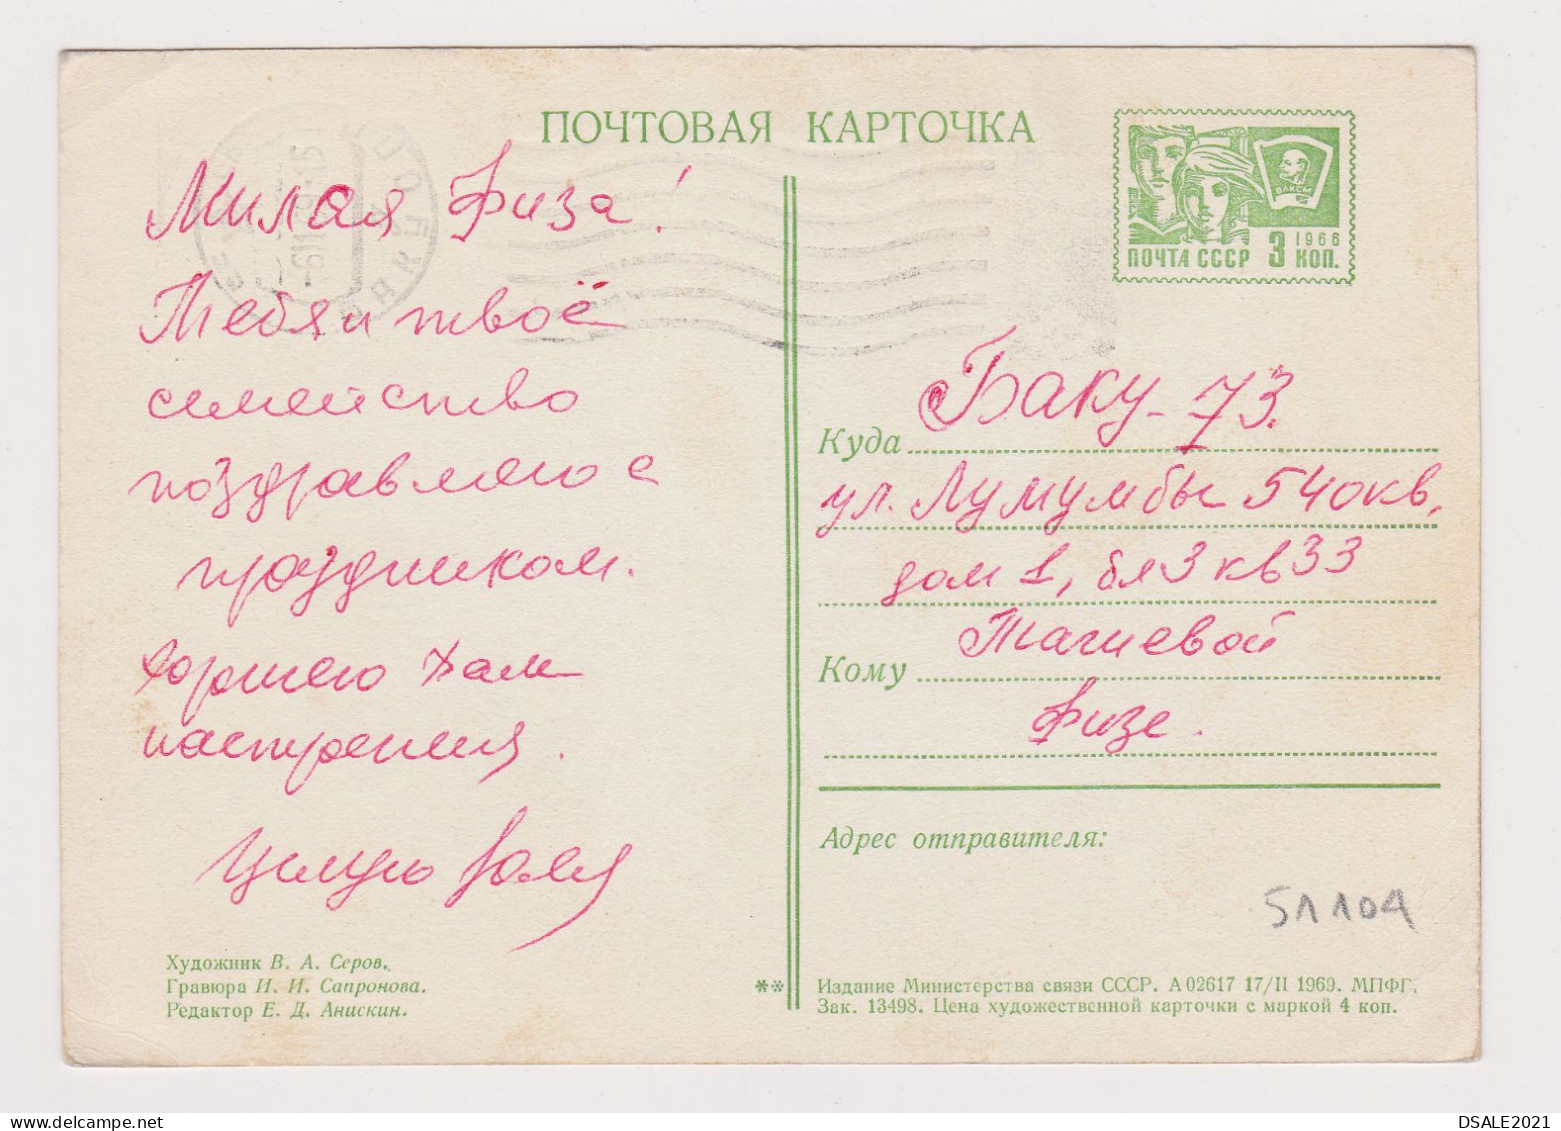 ПОЧТОВАЯ КАРТОЧКА
Милая Физа!
Тебя и твоё
семейство
поздравляю с
праздником.
Хорошего Вам
настроения.
Целую
ВЛКСМ
1966
ПОЧТА СССР 3 КОП.
Баку-73.
Куда
ул. Лумумбы 540 кв,
дом 1, бл 3 кв 33
Тагиевой
Кому
Физе.
Адрес отправителя:
51104
Художник В. А. Серов.
Гравюра И. И. Сапронова.
Редактор Е. Д. Анискин.
**
Издание Министерства связи СССР. А 02617 17/II 1969. МПФГ.
Зак. 13498. Цена художественной карточки с маркой 4 коп.
DSALE2021